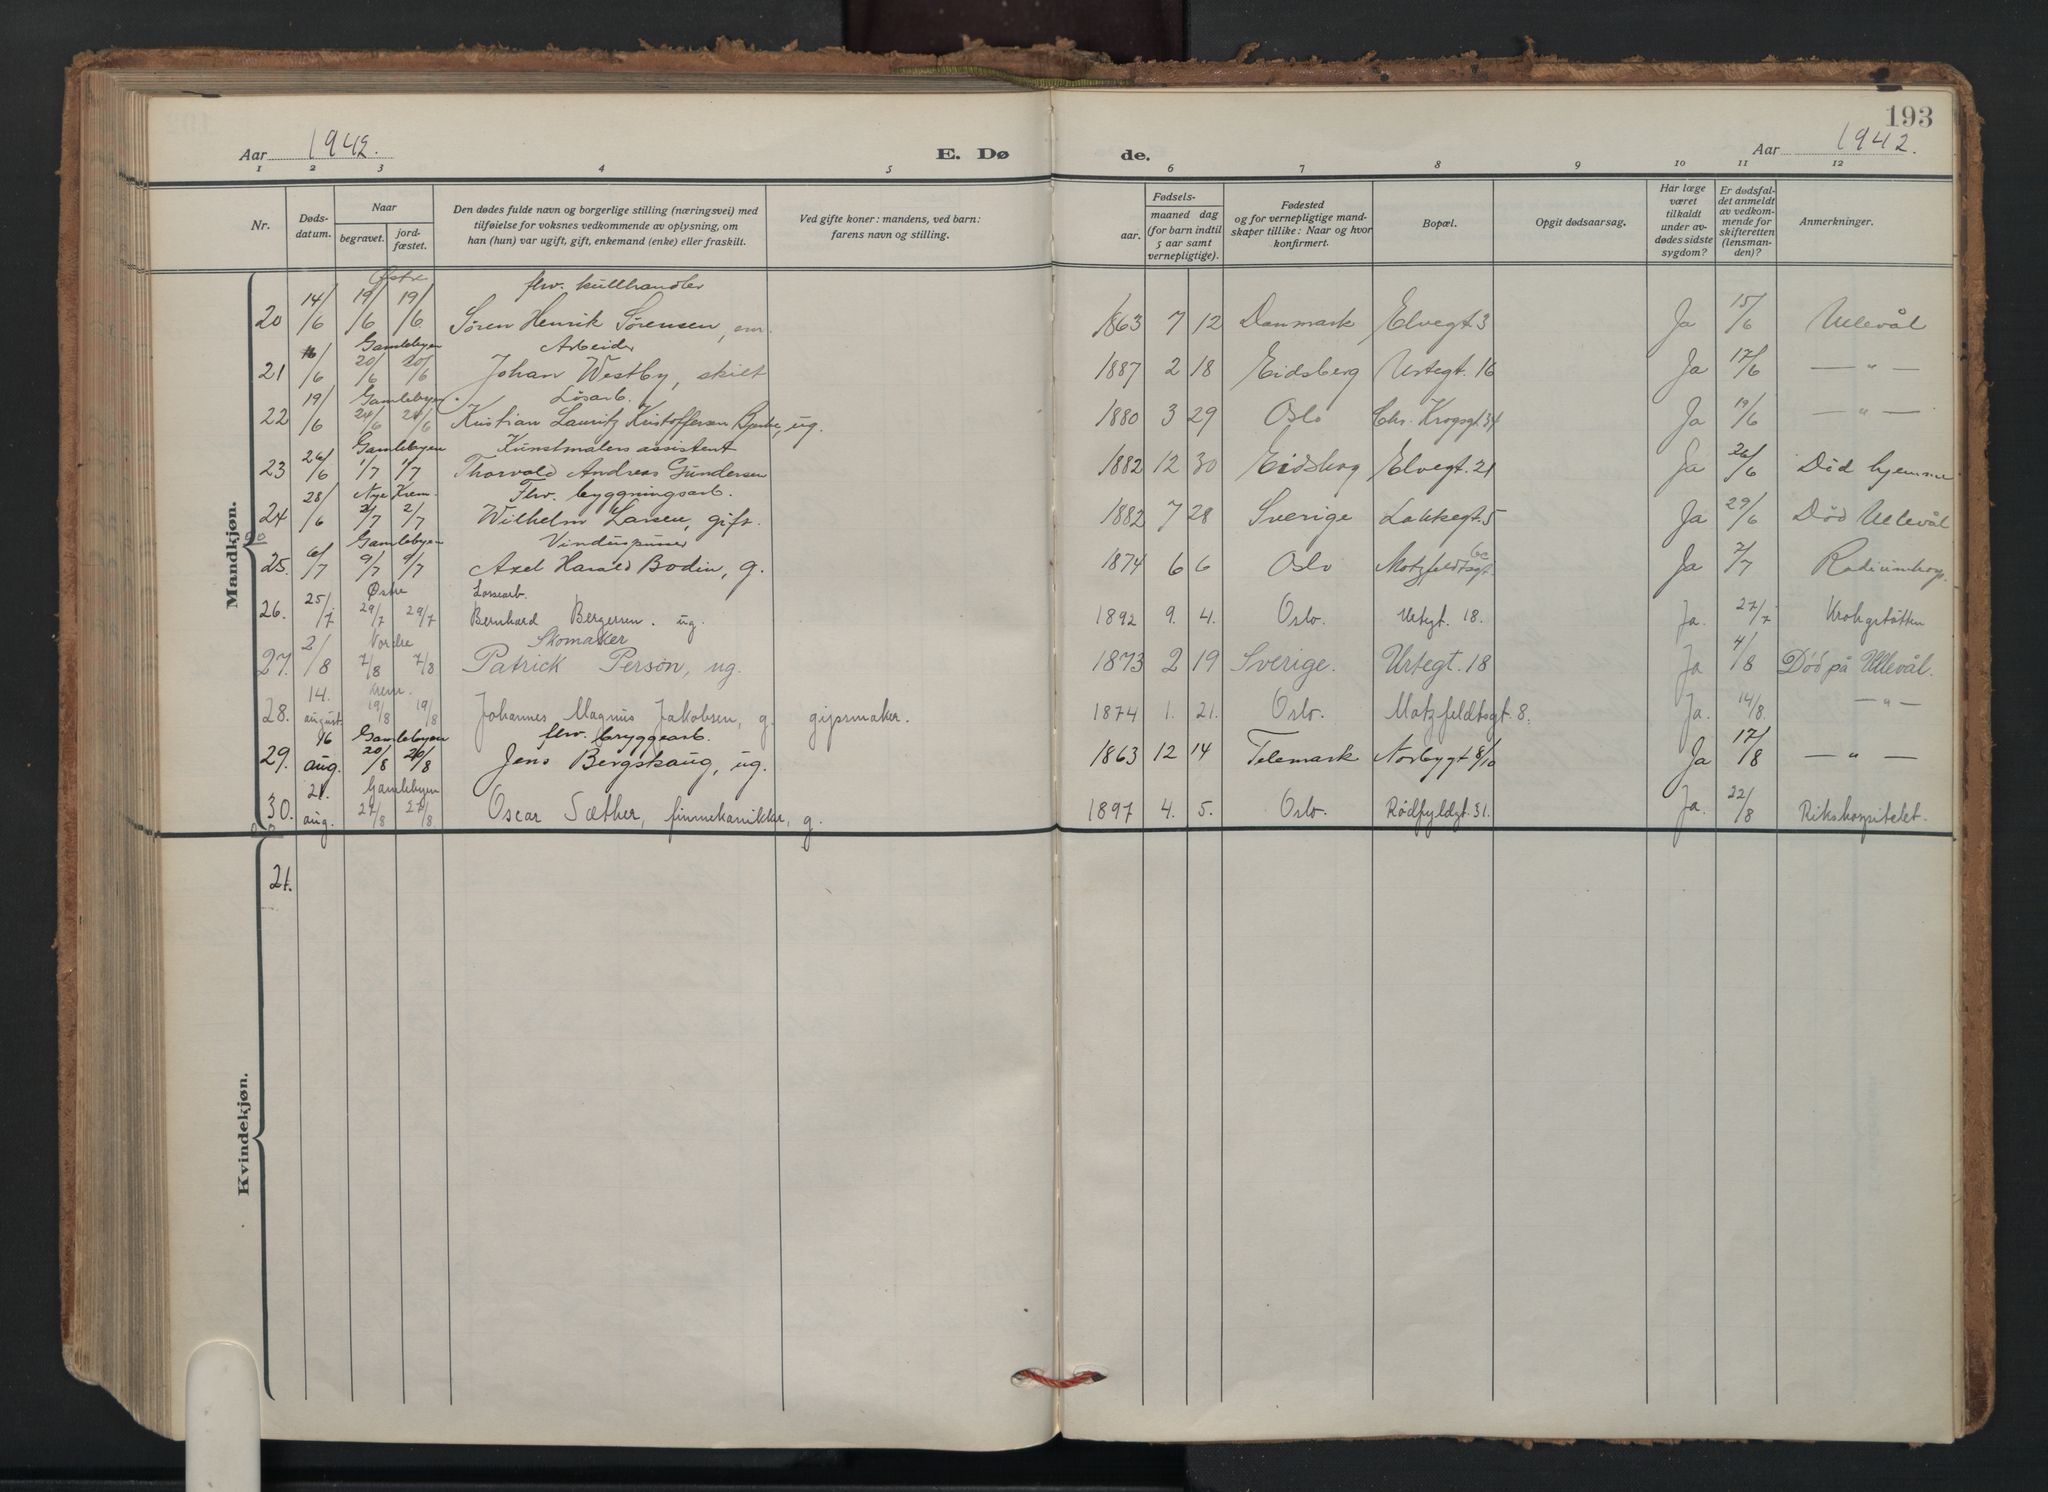 193
Aar 1942.
E. Døde.
Aar 1942.
1 2 3 4 5 6 7 8 9 10 11 12
Nr.
Døds-
datum.
Naar
begravet.
jord-
fæstet.
Den dødes fulde navn og borgerlige stilling (næringsvei) med
tilføielse for voksnes vedkommende av oplysning, om
han (hun) var ugift, gift, enkemand (enke) eller fraskilt.
Ved gifte koner: mandens, ved barn:
farens navn og stilling.
Fødsels-
aar.
maaned dag
(for barn indtil
5 aar samt
vernepligtige).
Fødested
og for vernepligtige mand-
skaper tillike: Naar og hvor
konfirmert.
Bopæl.
Opgit dødsaarsag.
Har læge
været
tilkaldt
under av-
dødes sidste
sygdom?
Er dødsfal-
det anmeldt
av vedkom-
mende for
skifteretten
(lensman-
den)?
Anmerkninger.
Mandkjøn.
Østre flw. kullhandler
20 14/6 19/6 19/6 Søren Henrik Sørensen, enr. 1863 7 12 Danmark Elvegt. 3 Ja 15/6 Ullevål
Gamlebyen Arbeider
21 16/6 20/6 20/6 Johan Westby, skilt 1887 2 18 Eidsberg Urtegt. 16 Ja 17/6 — " —
Gamlebyen. Løsarb.
22 19/6 24/6 24/6 Kristian Lauritz Kristoffersen ug. 1880 3 29 Oslo Chr. Krogsgt. 34 Ja 19/6 — " —
Gamlebyen Kunstmalers assistent
23 26/6 1/7 1/7 Thorvald Andreas Gundersen 1882 12 30 Eidsberg Elvegt. 21 Ja 26/6 Død hjemme
Nye Krem. Flw. byggningsarb.
24 28/6 2/7 2/7 Wilhelm Larsen, gift. 1882 7 28 Sverige Lakkegt. 5 Ja 29/6 Død Ullevål
Gamlebyen Vinduspusser
25. 6/7 9/7 9/7 Axel Harald Bodin, g. 1874 6 6 Oslo Motzfeldtsgt. Ja 7/7 Radiumhosp.
Østre Lossearb.
26. 25/7 29/7 29/7 Bernhard Bergersen. ug. 1892 9. 4. Oslo. Urtegt. 18. Ja. 27/7 Krohgstøtten
Nordre Skomaker
27. 2/8 7/8 7/8 Patrick Person, ug. 1873 2 19 Sverige. Urtegt. 18 Ja 4/8 Død på Ullevål.
Krem.
28. 14. august. 19/8 19/8 Johannes Magnus Jakobsen, g. gipsmaker. 1874 1. 21. Oslo. Motzfeldtsgt. 8. Ja. 14/8. — " —
Gamlebyen flw. bryggearb.
29. 16 aug. 20/8 20/8 Jens Bergskaug, ug. 1863 12 14 Telemark Norbygt 8/10 Ja 17/8 — " —
Gamlebyen
30. 21. aug. 27/8 27/8 Oscar Sæther, finmekanikker, g. 1897 4. 5. Oslo. Rødfyldgt. 31. Ja. 22/8 Rikshospitalet.
Kvindekjøn.
21.